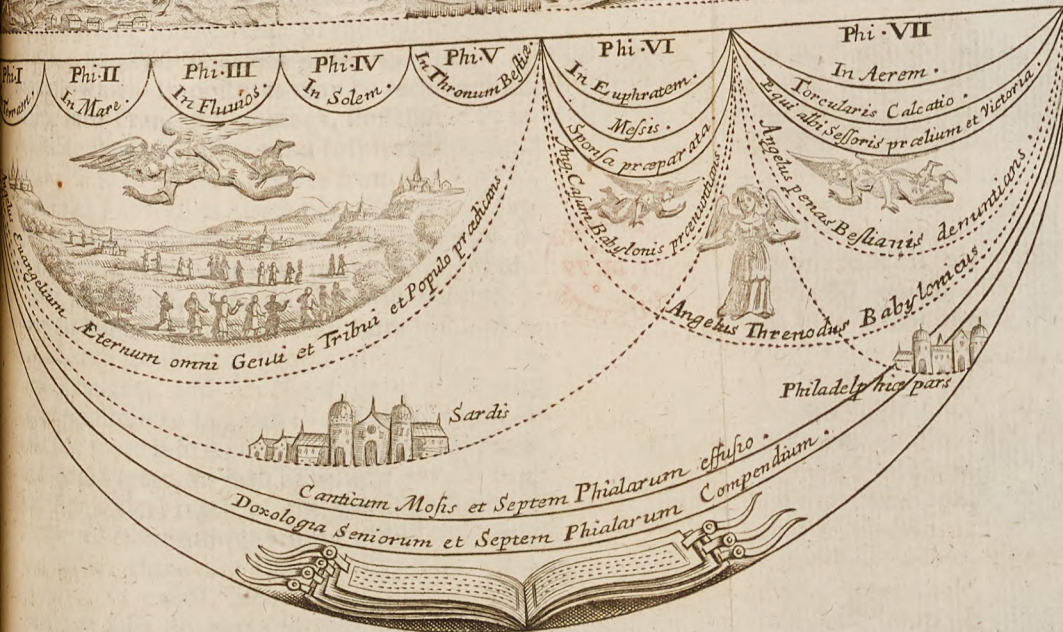 Phi·I
Terram.
Phi·II
In Mare.
Phi·III
In Fluvios.
Phi·IV
In Solem.
Phi·V
In Thronum Bestiæ.
Phi·VI
In Euphratem.
Messis.
Sponsa præparata
Ang. Casum Babylonis prænuntians.
Phi·VII
In Aerem.
Torcularis Calcatio.
Equi albi Sessoris prœlium et victoria.
Angelus penas Bestianis denuntians.
Angelus Threnodus Babylonicus.
Angelus Evangelium Æternum omni Genti et Tribui et Populo prædicans
Sardis
Philadelphiæ pars
Canticum Mosis et Septem Phialarum effusio.
Doxologia Seniorum et Septem Phialarum Compendium.